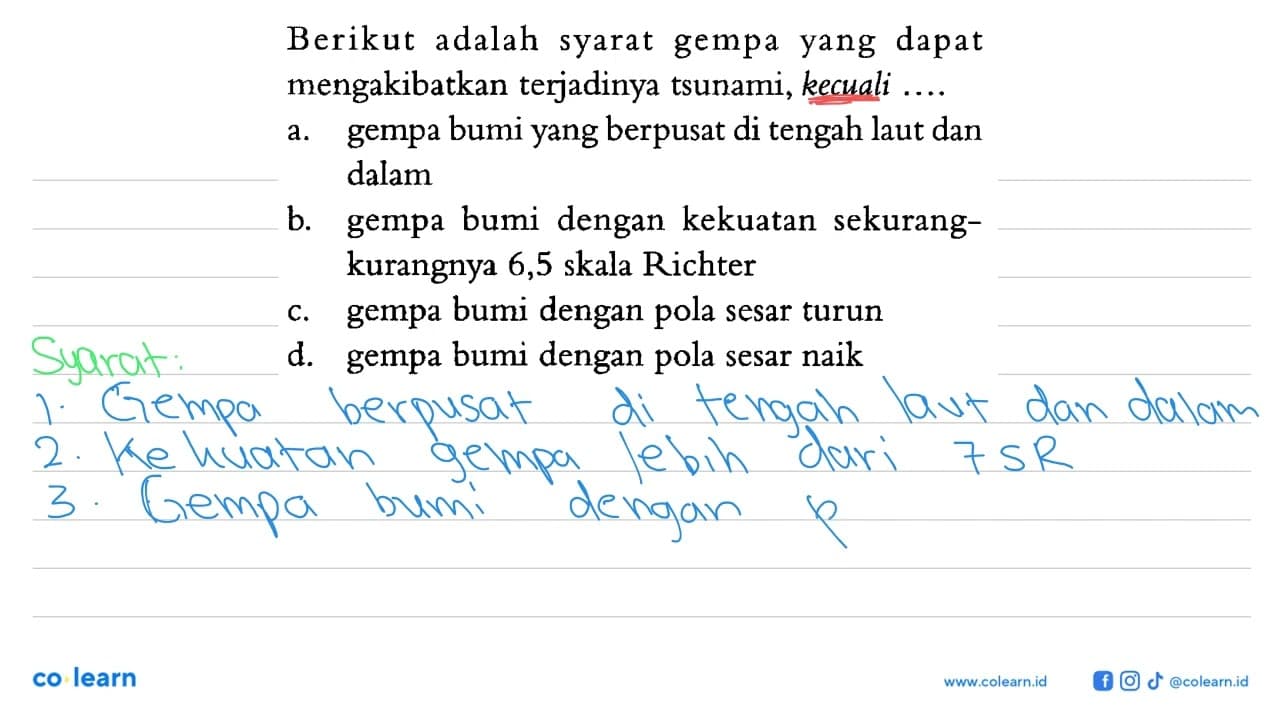 Berikut adalah syarat gempa yang dapat
mengakibatkan terjadinya tsunami, kecuali ....
a. gempa bumi yang berpusat di tengah laut dan
dalam
b. gempa bumi dengan kekuatan sekurang-
kurangnya 6,5 skala Richter
c. gempa bumi dengan pola sesar turun
d. gempa bumi dengan pola sesar naik
Syarat:
1. Gempa berpusat di tengah laut dan dalam
2. Kekuatan gempa lebih dari 7 SR
3. Gempa bumi dengan p
co learn
www.colearn.id
@colearn.id